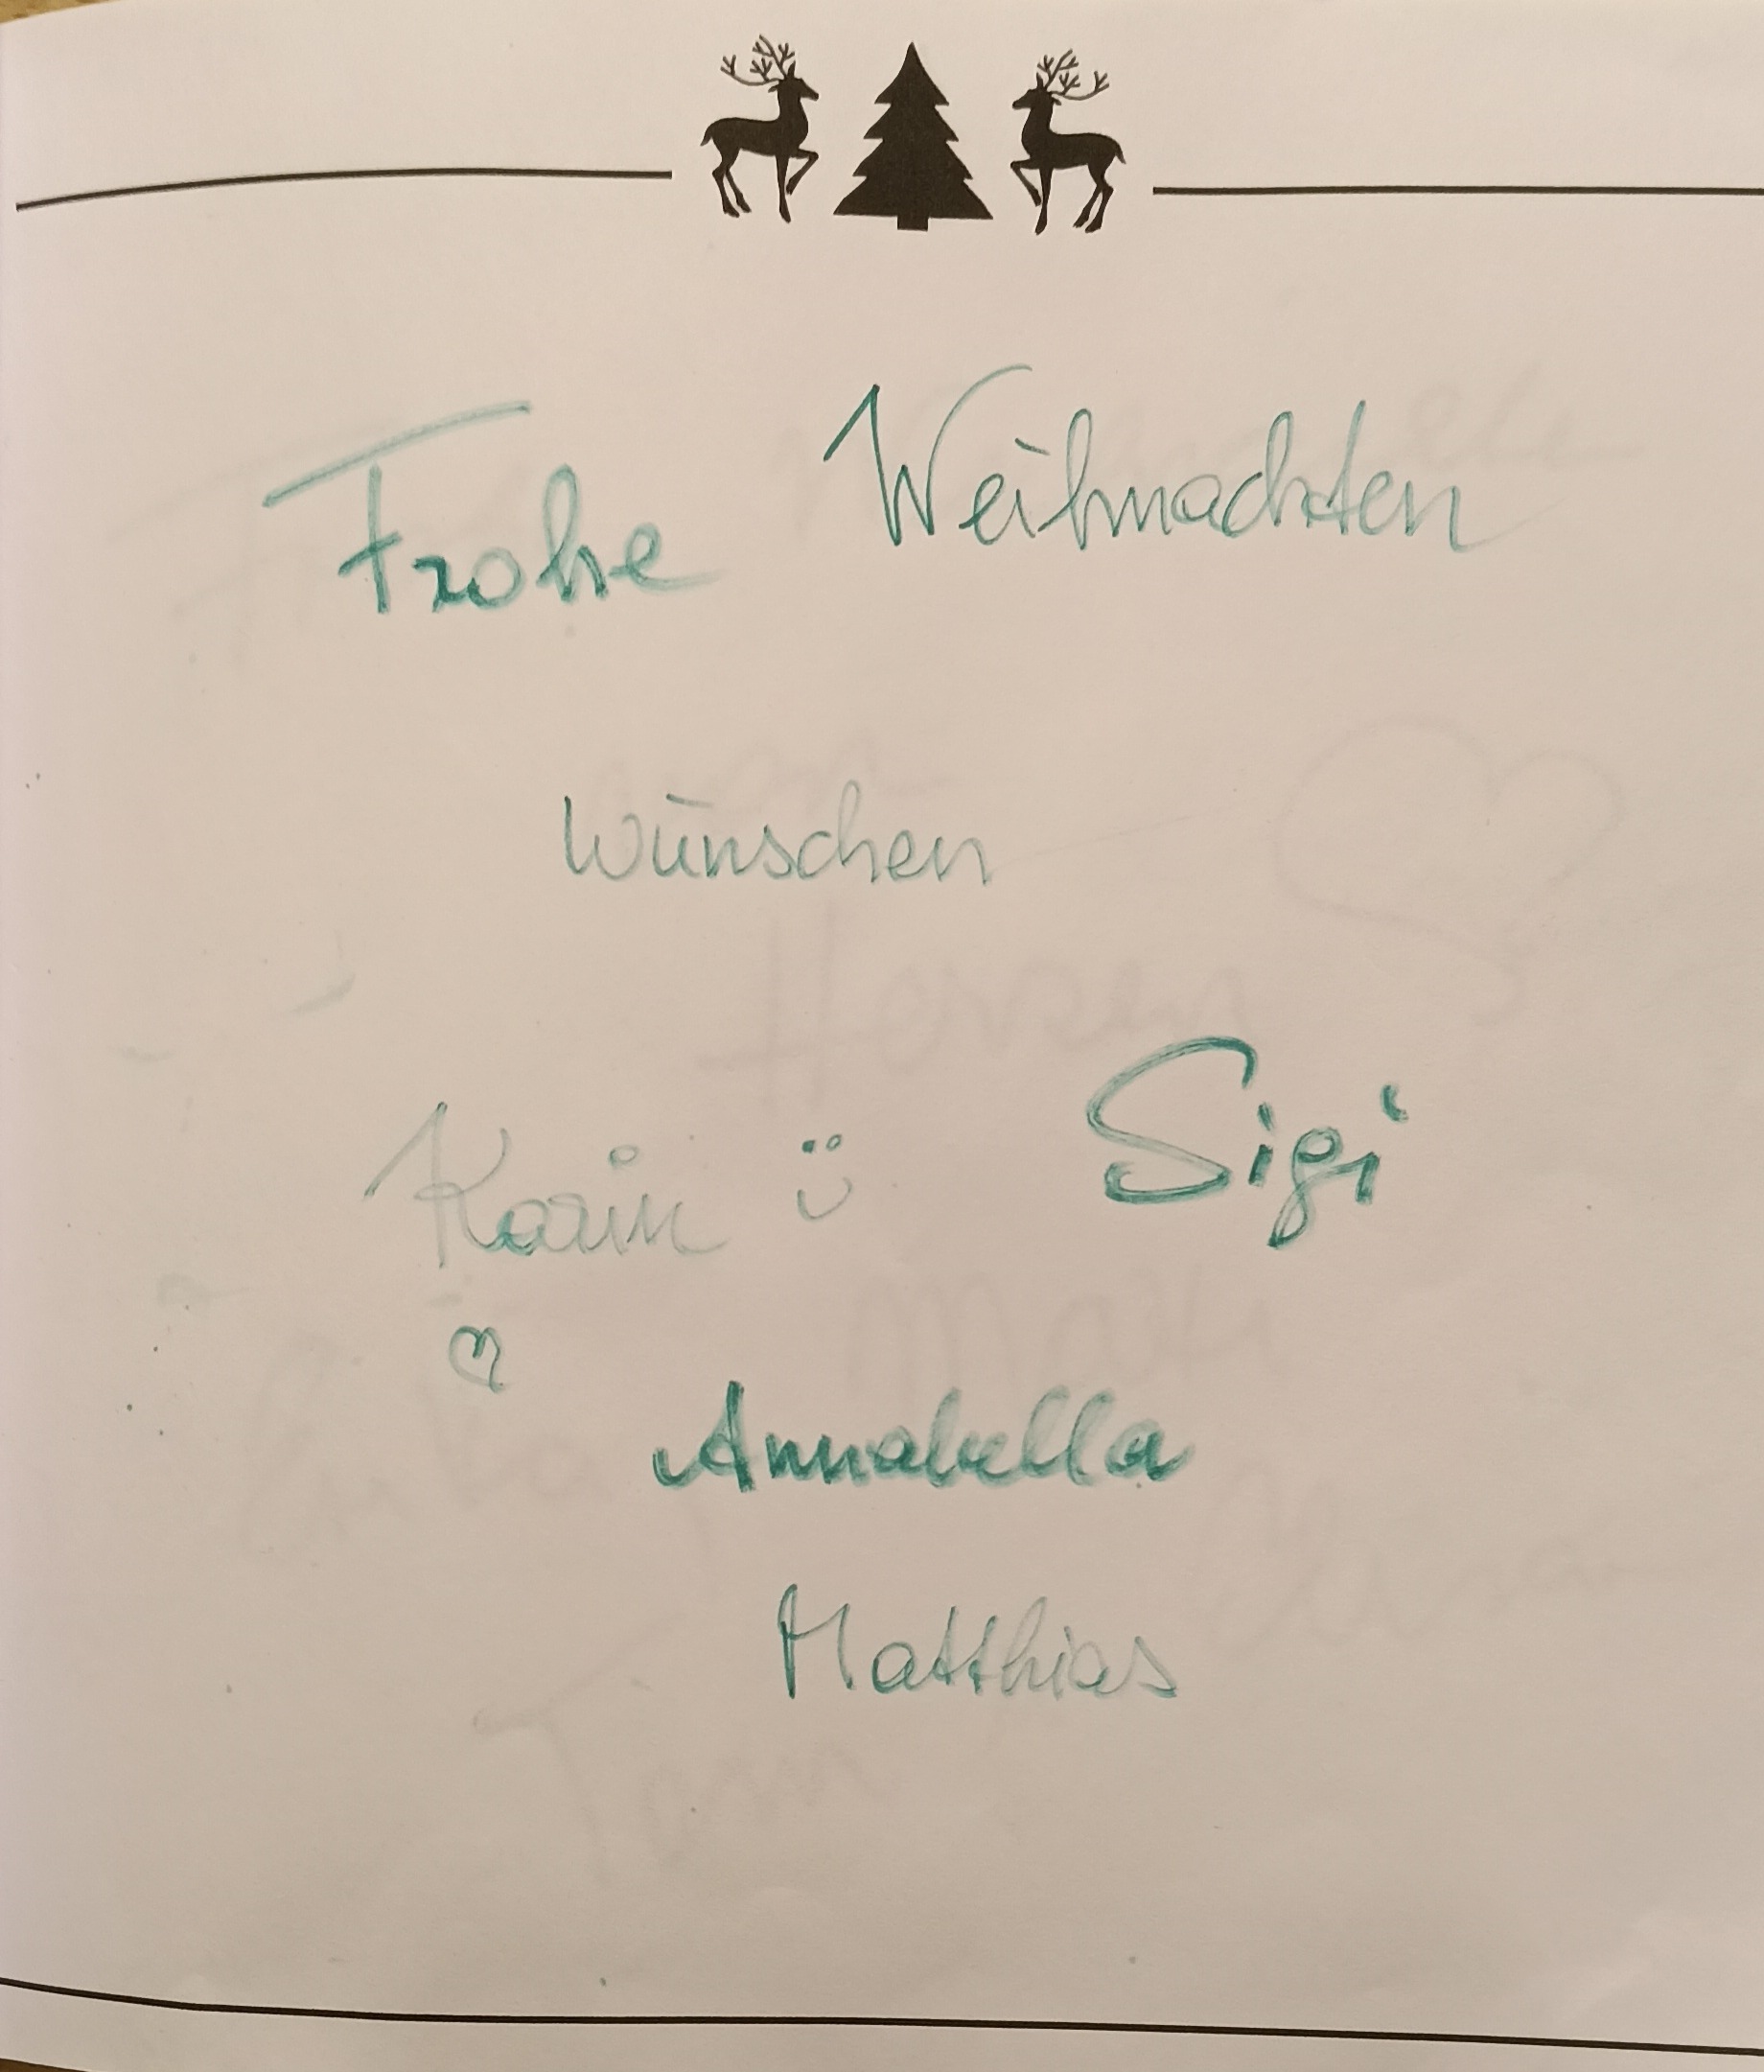 Frohe Weihnachten
wünschen
Karin Sigi
Annabella
Matthias